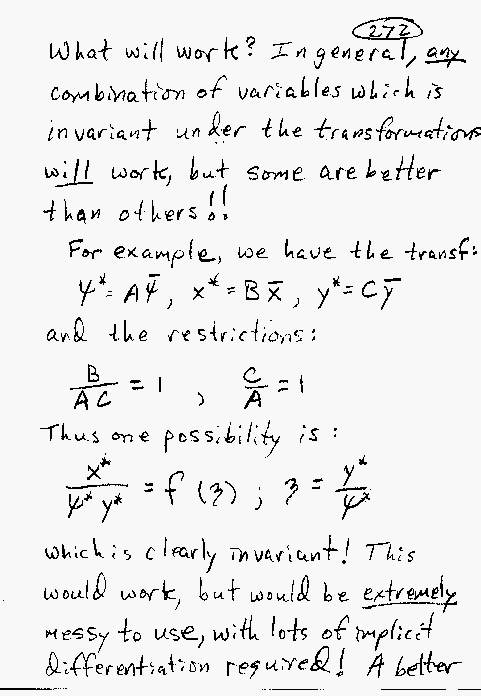 272
What will work? In general, any
combination of variables which is
invariant under the transformations
will work, but some are better
than others!!
For example, we have the transf:
ψ* = Aψ̄, x* = Bx̄, y* = Cȳ
and the restrictions:
B/AC = 1, C/A = 1
Thus one possibility is:
x*/ψ*y* = f(3); 3 = y*/ψ*
which is clearly invariant! This
would work, but would be extremely
messy to use, with lots of implicit
differentiation required! A better